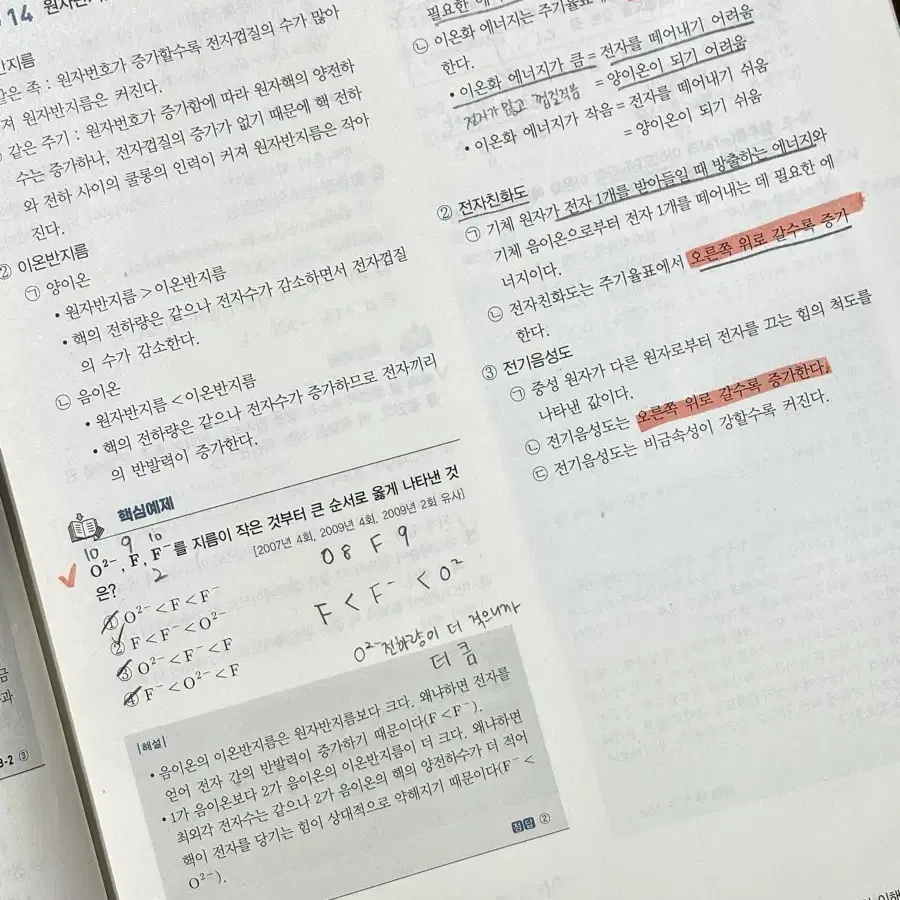 14 원자반
반지름
같은 족 : 원자번호가 증가할수록 전자껍질의 수가 많아
져 원자반지름은 커진다.
같은 주기 : 원자번호가 증가함에 따라 원자핵의 양전하
수는 증가하나, 전자껍질의 증가가 없기 때문에 핵 전하
와 전하 사이의 쿨롱의 인력이 커져 원자반지름은 작아
진다.
② 이온반지름
㉠ 양이온
• 원자반지름 > 이온반지름
• 핵의 전하량은 같으나 전자수가 감소하면서 전자껍질
의 수가 감소한다.
㉡ 음이온
• 원자반지름 < 이온반지름
• 핵의 전하량은 같으나 전자수가 증가하므로 전자끼리
의 반발력이 증가한다.
핵심예제
10 9 10
O²⁻, F, F⁻를 지름이 작은 것부터 큰 순서로 옳게 나타낸 것
은?
[2007년 4회, 2009년 4회, 2009년 2회 유사]
2
O 8 F 9
① O²⁻ < F < F⁻
② F < F⁻ < O²⁻
③ O²⁻ < F⁻ < F
④ F⁻ < O²⁻ < F
F < F⁻ < O²
O²⁻ 전하량이 더 적으니까
더 큼
|해설|
• 음이온의 이온반지름은 원자반지름보다 크다. 왜냐하면 전자를
얻어 전자 간의 반발력이 증가하기 때문이다(F < F⁻).
• 1가 음이온보다 2가 음이온의 이온반지름이 더 크다. 왜냐하면
최외각 전자수는 같으나 2가 음이온의 핵의 양전하수가 더 적어
핵이 전자를 당기는 힘이 상대적으로 약해지기 때문이다(F⁻ <
O²⁻).
정답 ②
3-2 ③
필요한
㉡ 이온화 에너지는 주기율표에
한다.
• 이온화 에너지가 큼 = 전자를 떼어내기 어려움
= 양이온이 되기 어려움
• 이온화 에너지가 작음 = 전자를 떼어내기 쉬움
= 양이온이 되기 쉬움
② 전자친화도
㉠ 기체 원자가 전자 1개를 받아들일 때 방출하는 에너지와
기체 음이온으로부터 전자 1개를 떼어내는 데 필요한 에
너지이다.
㉡ 전자친화도는 주기율표에서 오른쪽 위로 갈수록 증가
한다.
③ 전기음성도
㉠ 중성 원자가 다른 원자로부터 전자를 끄는 힘의 척도를
나타낸 값이다.
㉡ 전기음성도는 오른쪽 위로 갈수록 증가한다.
㉢ 전기음성도는 비금속성이 강할수록 커진다.
이해